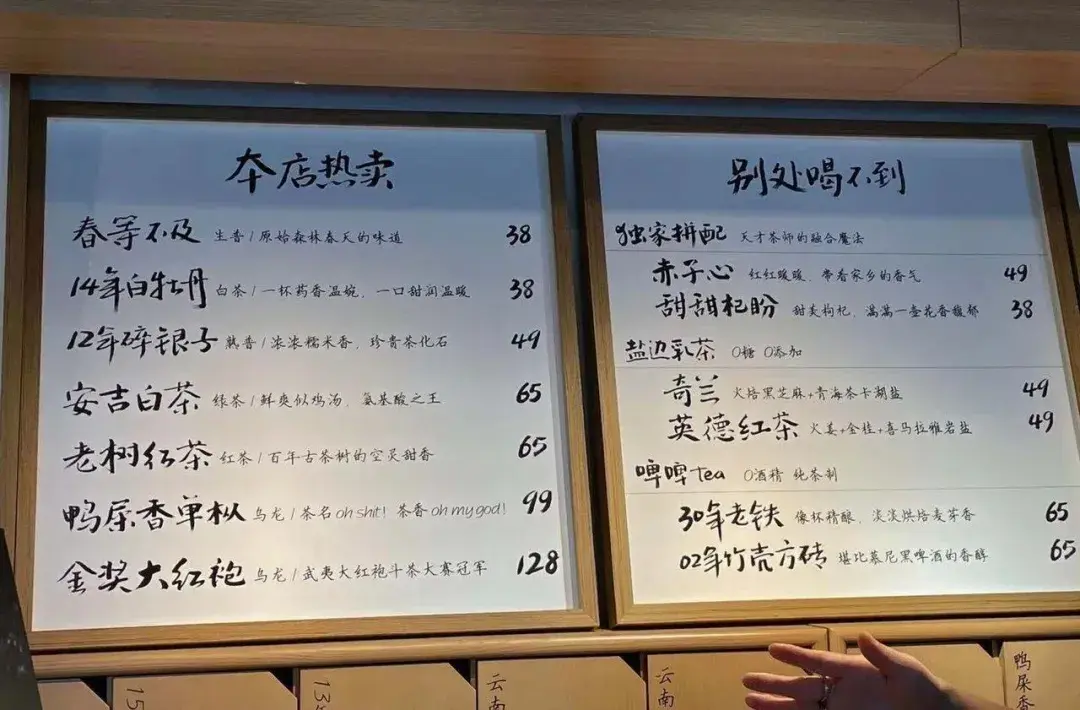 本店热卖
春等不及 生普/原始森林春天的味道 38
14年白牡丹 白茶/一杯药香温婉、一口甜润温暖 38
12年碎银子 熟普/浓浓糯米香、珍贵茶化石 49
安吉白茶 绿茶/鲜爽似鸡汤、氨基酸之王 65
老树红茶 红茶/百年古茶树的空灵甜香 65
鸭屎香单枞 乌龙/茶名oh shit! 茶香oh my god! 99
金奖大红袍 乌龙/武夷大红袍斗茶大赛冠军 128
别处喝不到
独家拼配 天才茶师的融合魔法
赤子心 红红暖暖、带着家乡的香气 49
甜甜杞盼 甜美枸杞、满满一壶花香馥郁 38
盐边乳茶 0糖 0添加
奇兰 火焙黑芝麻+青海茶卡湖盐 49
英德红茶 火姜+金桂+喜马拉雅岩盐 49
啤啤tea 0酒精 纯茶制
30年老铁 像杯精酿、淡淡烘焙麦芽香 65
02年竹壳方砖 堪比慕尼黑啤酒的香醇 65
15
13
云南
云南
鸭屎香